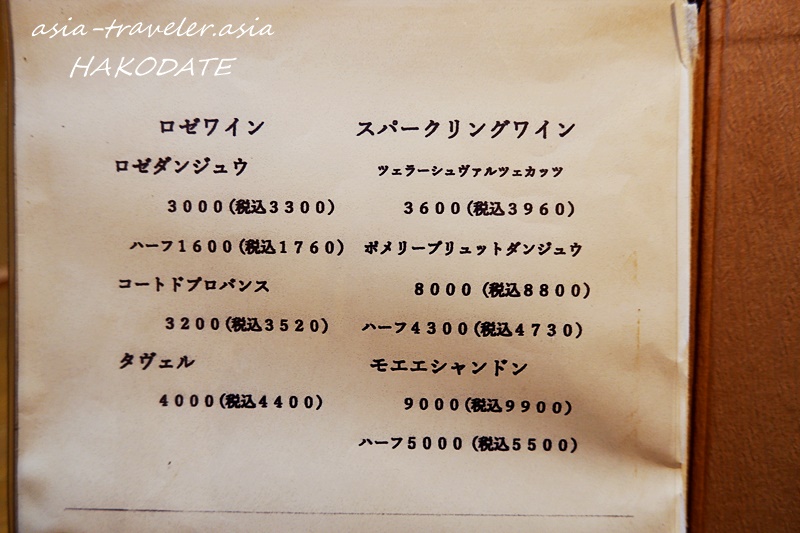 asia-traveler.asia
HAKODATE
ロゼワイン
ロゼダンジュウ
3000(税込3300)
ハーフ1600(税込1760)
コートドプロバンス
3200(税込3520)
タヴェル
4000(税込4400)
スパークリングワイン
ツェラーシュヴァルツェカッツ
3600(税込3960)
ポメリーブリュットダンジュウ
8000 (税込8800)
ハーフ4300(税込4730)
モエエシャンドン
9000(税込9900)
ハーフ5000 (税込5500)